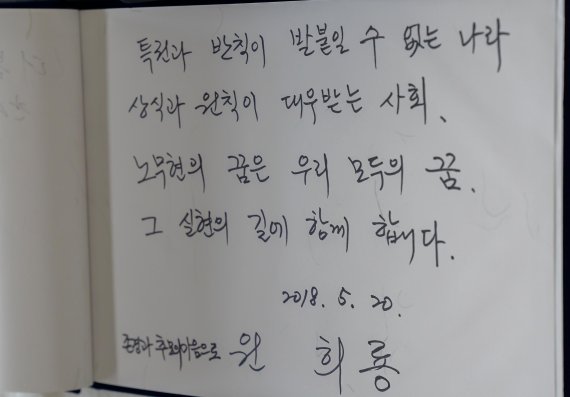 특권과 반칙이 발붙일 수 없는 나라
상식과 원칙이 대우받는 사회.
노무현의 꿈은 우리 모두의 꿈.
그 실현의 길에 함께 합니다.
2018. 5. 20.
존경과 추모의마음으로 원 희 룡